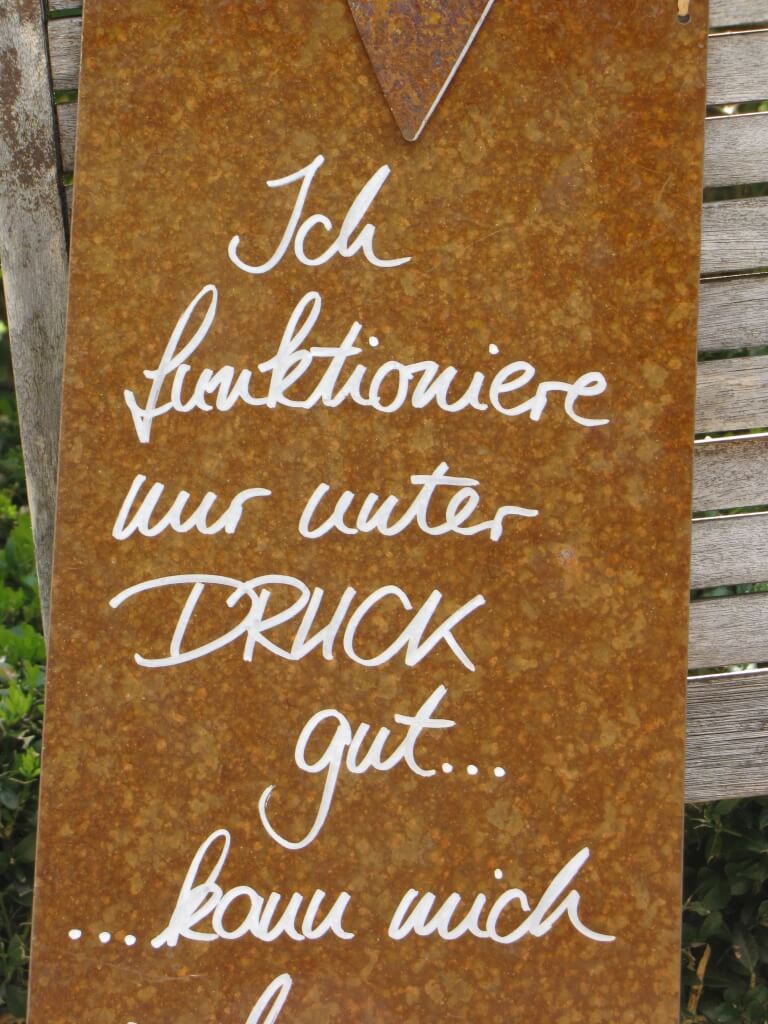 Ich
funktioniere
nur unter
DRUCK
gut...
...kann mich